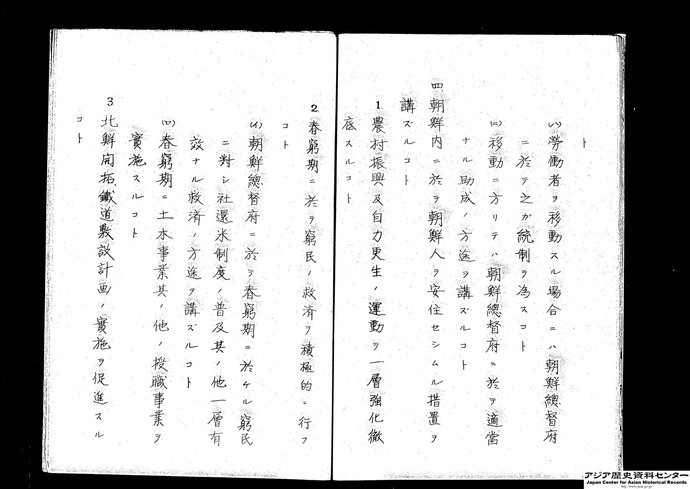 ト
(ハ)労働者ヲ移動スル場合ニハ朝鮮總督府
ニ於テ之ガ統制ヲ為スコト
(ニ)移動ニ方リテハ朝鮮總督府ニ於テ適當
ナル助成ノ方途ヲ講ズルコト
四、朝鮮内ニ於テ朝鮮人ヲ安住セシムル措置ヲ
講ズルコト
1 農村振興及自力更生ノ運動ヲ一層強化徹
底スルコト
2 春窮期ニ於テ窮民ノ救済ヲ積極的ニ行フ
コト
(イ)朝鮮總督府ニ於テ春窮期ニ於ケル窮民
ニ對シ社還米制度ノ普及其ノ他一層有
效ナル救済ノ方途ヲ講ズルコト
(ロ)春窮期ニ土木事業其ノ他ノ授職事業ヲ
實施スルコト
3 北鮮開拓、鐵道敷設計画ノ實施ヲ促進スル
コト
アジア歴史資料センター
Japan Center for Asian Historical Records
http://www.jacar.go.jp/